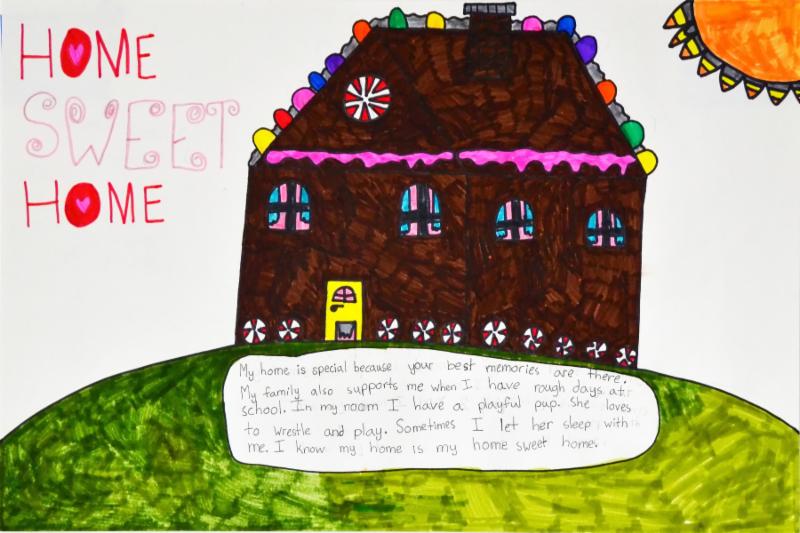 HOME
SWEET
HOME
My home is special because your best memories are there.
My family also supports me when I have rough days at
school. In my room I have a playful pup. She loves
to wrestle and play. Sometimes I let her sleep with
me. I know my home is my home sweet home.